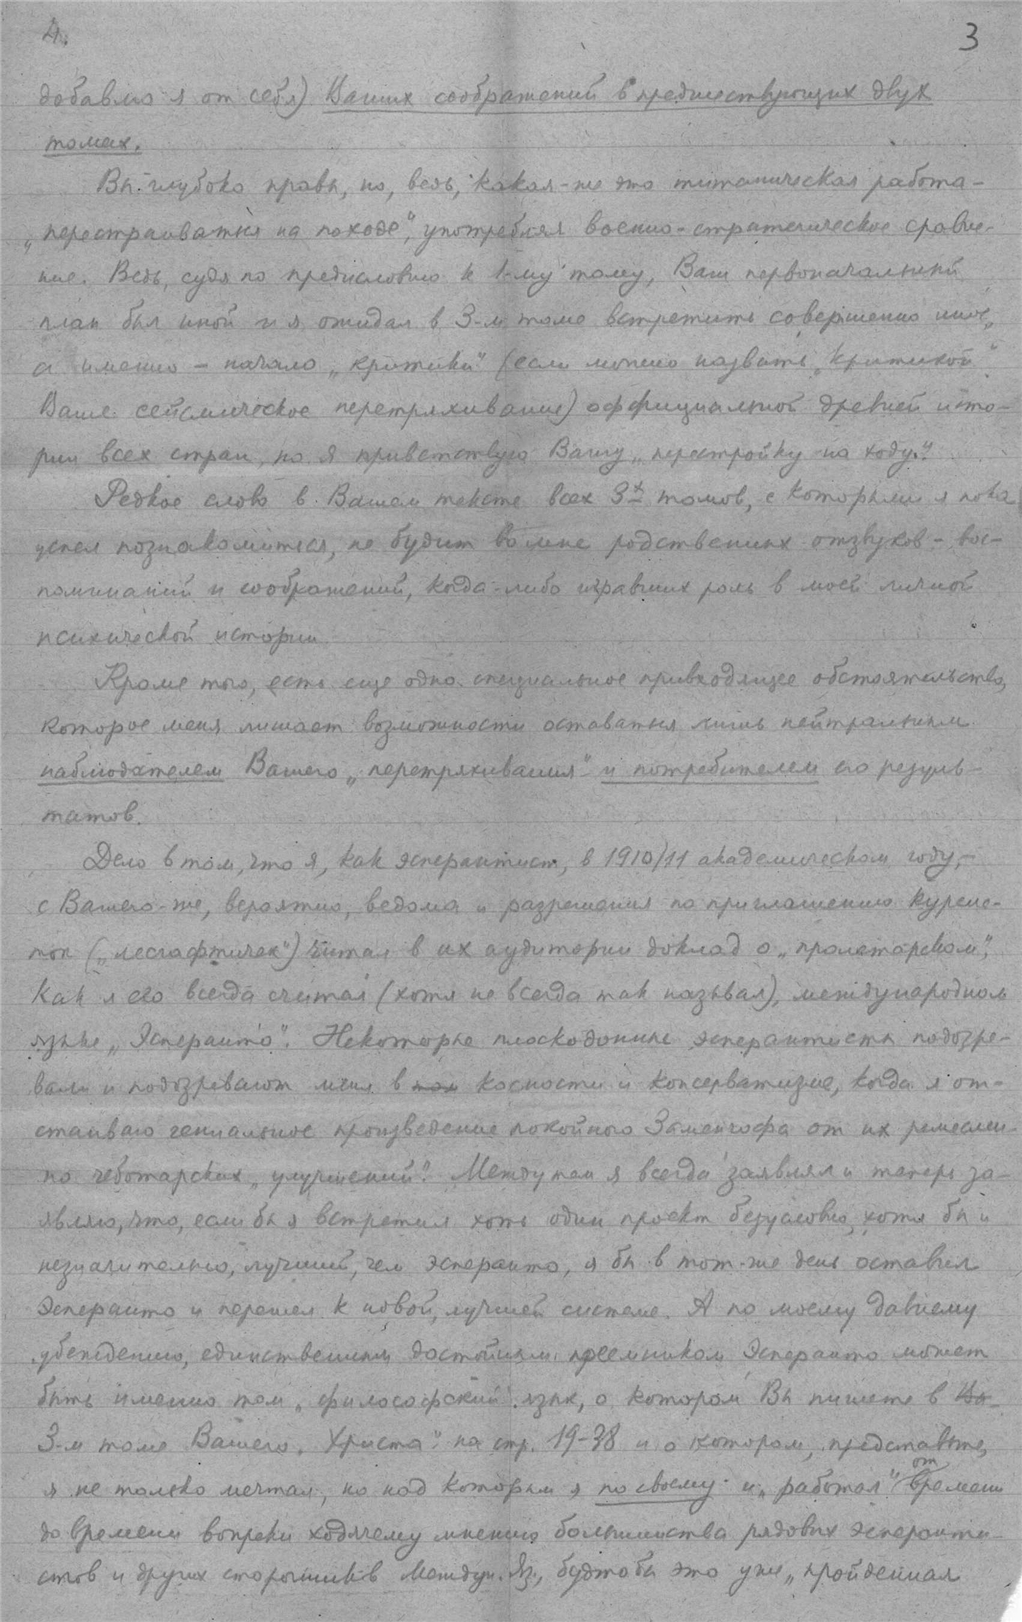 4. 3
добавлю я от себя) Ваших соображений в предшествующих двух
томах.
Вы глубоко правы, но, ведь, какая-же это титаническая работа –
„перестраиваться на походе", употребляя военно-стратегическое сравне-
ние. Ведь, судя по предисловию к 1-му тому, Ваш первоначальный
план был иной и я ожидал в 3-м томе встретить совершенно иное,
а именно – начало „критики" (если можно назвать „критикой"
Ваше сейсмическое перетряхивание) оффициальной древней исто-
рии всех стран, но я приветствую Вашу „перестройку на ходу".
Редкое слово в Вашем тексте всех 3х томов, с которыми я пока
успел познакомиться, не будит во мне родственных отзвуков – вос-
поминаний и соображений, когда-либо игравших роль в моей личной
психической истории.
Кроме того, есть еще одно специальное привходящее обстоятельство,
которое меня лишает возможности оставаться лишь нейтральным
наблюдателем Вашего „перетряхивания" и потребителем его резуль-
татов.
Дело в том, что я, как эсперантист, в 1910/11 академическом году, –
с Вашего-же, вероятно, ведома и разрешения по приглашению курсис-
ток („лесгафтичек") читал в их аудитории доклад о „пролетарском",
как я его всегда считал (хотя не всегда так называл), международном
языке „Эсперанто". Некоторые плоскодонные эсперантисты подозре-
вали и подозревают меня в косности и консерватизме, когда я от-
стаиваю гениальное произведение покойного Заменгофа от их ремеслен-
но чеботарских „улучшений". Между тем я всегда заявлял и теперь за-
являю, что, если бы я встретил хоть один проект безусловно, хотя бы и
незначительно, лучший, чем эсперанто, я бы в тот-же день оставил
Эсперанто и перешел к новой, лучшей системе. А по моему давнему
убеждению, единственным достойным преемником Эсперанто может
быть именно тот „философский" язык, о котором Вы пишете в
3-м томе Вашего „Христа" на стр. 19-38 и о котором, представьте,
я не только мечтал, но над которым я по своему и „работал" от времени
до времени вопреки ходячему мнению большинства рядовых эсперанти-
стов и других сторонников Междун. Яз., будто бы это уже „пройденная